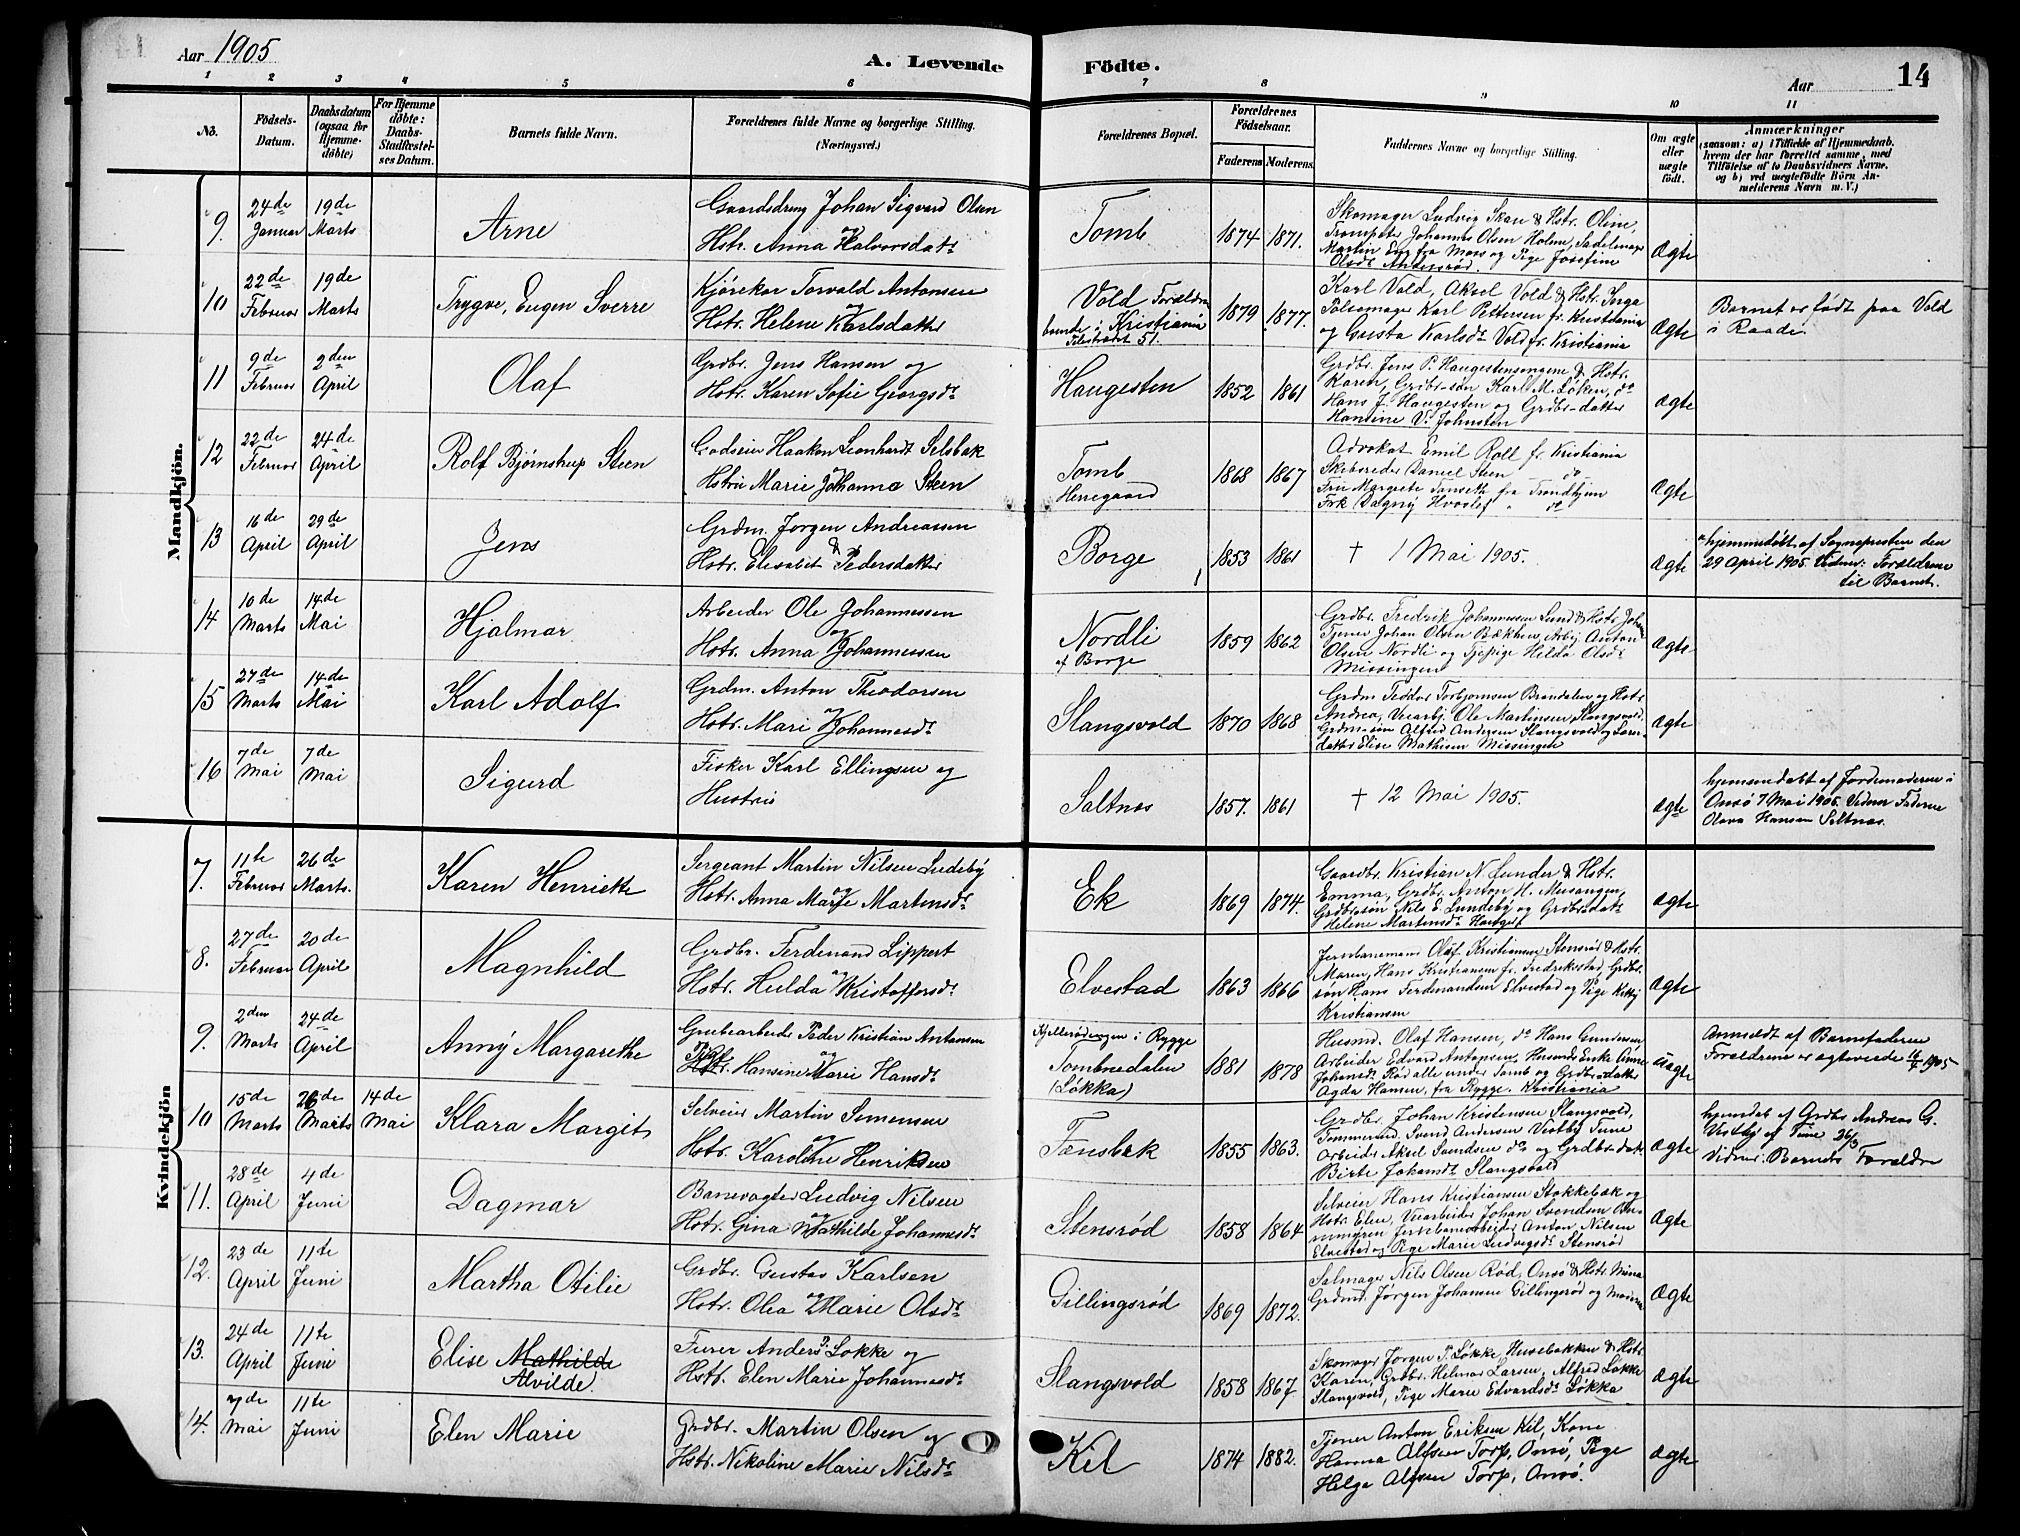 Aar 1905
A. Levende Födte.
Aar 14
1 2 3 4 5 6 7 8 9 10 11
No.
Födsels-Datum.
Daabsdatum (ogsaa for Hjemme-döbte)
For Hjemme döbte: Daabs-Stadfæstel-ses Datum.
Barnets fulde Navn.
Forældrenes fulde Navne og borgerlige Stilling.
(Næringsvei.)
Forældrenes Bopæl.
Forældrenes Födselsaar.
Faderens Moderens
Faddernes Navne og borgerlige Stilling.
Om ægte eller uægte födt.
Anmærkninger
(saasom: a) i Tilfælde af Hjemmedaab, hvem der har forrettet samme, med Tilföielse af to Daabsvidners Navne, og b) ved uægtefödte Börn Anmelderens Navn m. V.)
Mandkjön.
9. 24de Januar 19de Marts
Arne
Gaardsdreng Johan Sigvard Olsen
og
Hstr. Anna Halvorsdatr
Tomb
1874 1871.
Skomager Ludvig Skau & Hstr. Oline,
Trompeter Johannes Olsen Holme, Sadelmager
Martin fra Moss og Pige Josefine
Olsdr
Ægte
10 22de Februar 19de Marts
Trygve, Eugen Sverre
Kjørekar Torvald Antonsen
og
Hstr. Helene Karlsdatter
Vold Forældre
boende i Kristiania
51.
1879 1877.
Karl Vold, Aksel Vold & Hstr. Inga
Karl Pettersen fr. Kristiania
og Karlsdr Vold fr. Kristiania
Ægte
Barnet er født paa Vold
i Raade.
11 9de Februar 2den April
Olaf
Grdbr. Jens Hansen og
Hstr. Karen Sofie Georgsdr
Haugesten
1852 1861
Grdbr. Jens P. Haugestensengene & Hstr.
Karen, Grdbr-søn Karl M. Løken, do
Hans J. Haugesten og Grdbr-datter
Hansine V. Johnsten
Ægte
12 22de Februar 24de April
Rolf Bjørnstrup Steen
Godseier Haakon Leonhardt Selsbak
og
Hstru Marie Johanna Steen
Tomb
Herregaard
1868 1867
Advokat Emil Roll fr. Kristiania
Skibsreder Daniel Steen do
Fru Margrete fra Trondhjem
Frk Dagny do
Ægte
13 16de April 29de April
Jens
Grdm. Jørgen Andreassen
&
Hstr. Elisabet Pedersdatter
Borge
1853 1861
† 1 Mai 1905.
Ægte
hjemmedøbt af Sognepresten den
29 April 1905. Vidner: Forældrene
til Barnet.
14 10de Marts 14de Mai
Hjalmar
Arbeider Ole Johannessen
og
Hstr. Anna Johannessen
Nordli
af Borge
1859 1862
Grdbr. Fredrik Johannessen Lund & Hstr.
Tjener Johan Olsen Arbj. Anton
Olsen Nordli og Tjepige Helda Olsdr
Missingen
Ægte
15 27de Marts 14de Mai
Karl Adolf
Grdm. Anton Theodorsen
og
Hstr. Mari Johannesdr
Slangsvold
1870 1868
Grdm Teodor Torbjørnsen Brandalen og Hstr.
Andrea, Ole Martinsen Slangsvold,
Grdm-søn Alfred Andersen Slangsvold og
datter Elise Mathisen Missingen
Ægte
16 7de Mai 7de Mai
Sigurd
Fisker Karl Ellingsen og
Hustru
Saltnes
1857. 1861
† 12 Mai 1905.
Ægte
hjemmedøbt af Jordemoderen i
Onsø 7 Mai 1905. Vidner Faderen
Olava Hansen Saltnæs.
Kvindekjön
7. 11te Februar 26de Marts.
Karen Henriette
Sergeant Martin Nilsen Ludeby
og
Hstr. Anna Marie Martinsdr
Ek
1869 1874.
Gaardbr. Kristian N. Lunder & Hstr.
Emma, Grdbr. Anton H. Missingen,
Grdbrsøn Nils E. Lundeby og Grdbrsdatr
Helene Martinsdr Hauger
Ægte
8. 27de Februar 20de April
Magnhild
Grdbr. Ferdinand Lippert
og
Hstr. Hulda Kristoffersdr
Elvestad
1863 1866
Jernbanemand Olaf Kristiansen Stensrød & Hstr.
Maren, Hans Kristiansen fr. Fredriksstad, Grdbr.
søn Hans Ferdinandsen Elvestad og Pige Kitty
Kristiansen
Ægte
9. 2den Marts 24de April
Anny Margarethe
Grubearbeider Peder Kristian Antonsen
Pige og
Hstr. Hansine Marie Hansdr
Kjellerødengen i Rygge
Tombnedalen
(Løkka)
1881 1878
Husmd. Olaf Hansen, do Hans Gundersen
Arbeider Edvard Antonsen, Husmds Enke Anne
Johansdr Rød alle under Tomb og Grdbr.datter
Agda Hansen, fra Rygge. Kristiania
Uægte
Anmeldt af Barnefaderen
Forældrene er ægteviede 1905
10 15de Marts 26de Marts 14de Mai
Klara Margit
Selveier Martin Simensen
og
Hstr. Karoline Henriksen
Tænsbæk
1855 1863.
Grdbr. Johan Kristensen Slangsvold,
Tømmermd. Svend Andersen Vestby Tune
Arbeider Aksel Svendsen do og Grdbr-datr
Birte Johansdr Slangsvold
Ægte
hjemdøb af Grdbr Andreas G.
Vestby af Tune 26/3
Vidner: Barnets Forældre
11. 28de April 4de Juni
Dagmar
Banevogter Ludvig Nilsen
og
Hstr. Gina Mathilde Johannesdr
Stensrød
1858 1864
Selveier Hans Kristiansen Stokkebæk og
Hstr. Elen, Veiarbeider Johan Svendsen
Jernbanearbeider Anton Nilsen
Elvestad og Pige Marie Ludvigsdr Stensrød
Ægte
12. 23de April 11te Juni
Martha Otilie
Grdbr. Gustav Karlsen
og
Hstr. Olea Marie Olsdr
Gillingsrød
1869 1872.
Salmager Nils Olsen Rød, Onsø & Hstr. Mina
Grdmd. Jørgen Johansen Gillingsrød og
Ægte
13. 24de April 11te Juni
Elise Mathilde
Alvilde.
Furer Anders Løkke og
Hstr. Elen Marie Johannesdr
Slangsvold
1858 1867.
Skomager Jørgen P. Løkke, Husebakken & Hstr.
Karen, Grdbr. Helmer Larsen, Alfred Løkke
Slangsvold, Pige Marie Edvardsdr Løkka
Ægte
14. 7de Mai 11te Juni
Elen Marie
Grdbr. Martin Olsen og
Hstr. Nikoline Marie Nilsdr
Kil
1874 1882.
Tjener Anton Eriksen Kil, Kone
Hanna Alfsen Torp, Onsø, Pige
Helga Alfsen Torp, Onsø.
Ægte